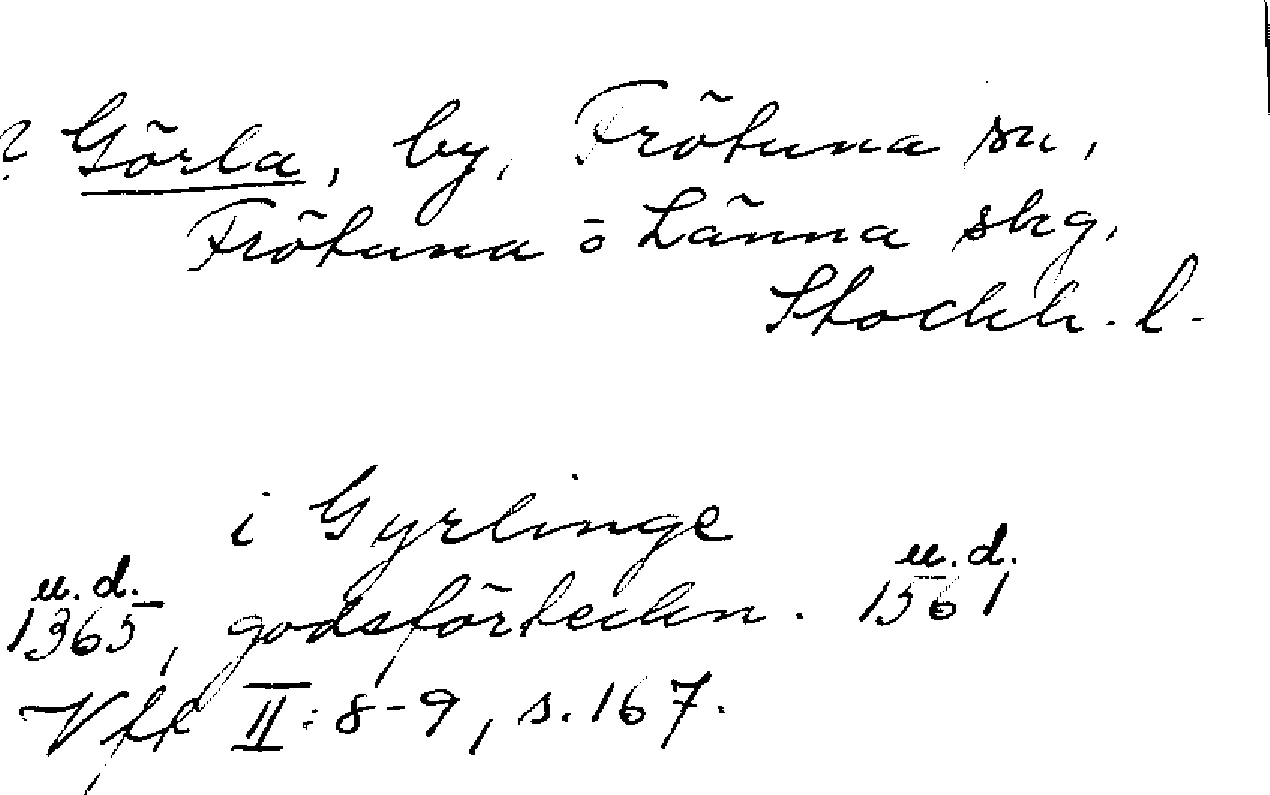 ? Görla, by, Frötuna sn,
Frötuna o Länna skg.
Stockh. l.
i Gyrlinge
u.d. u.d.
1365, godsförteckn. 1561
Vff II:8-9, s.167.